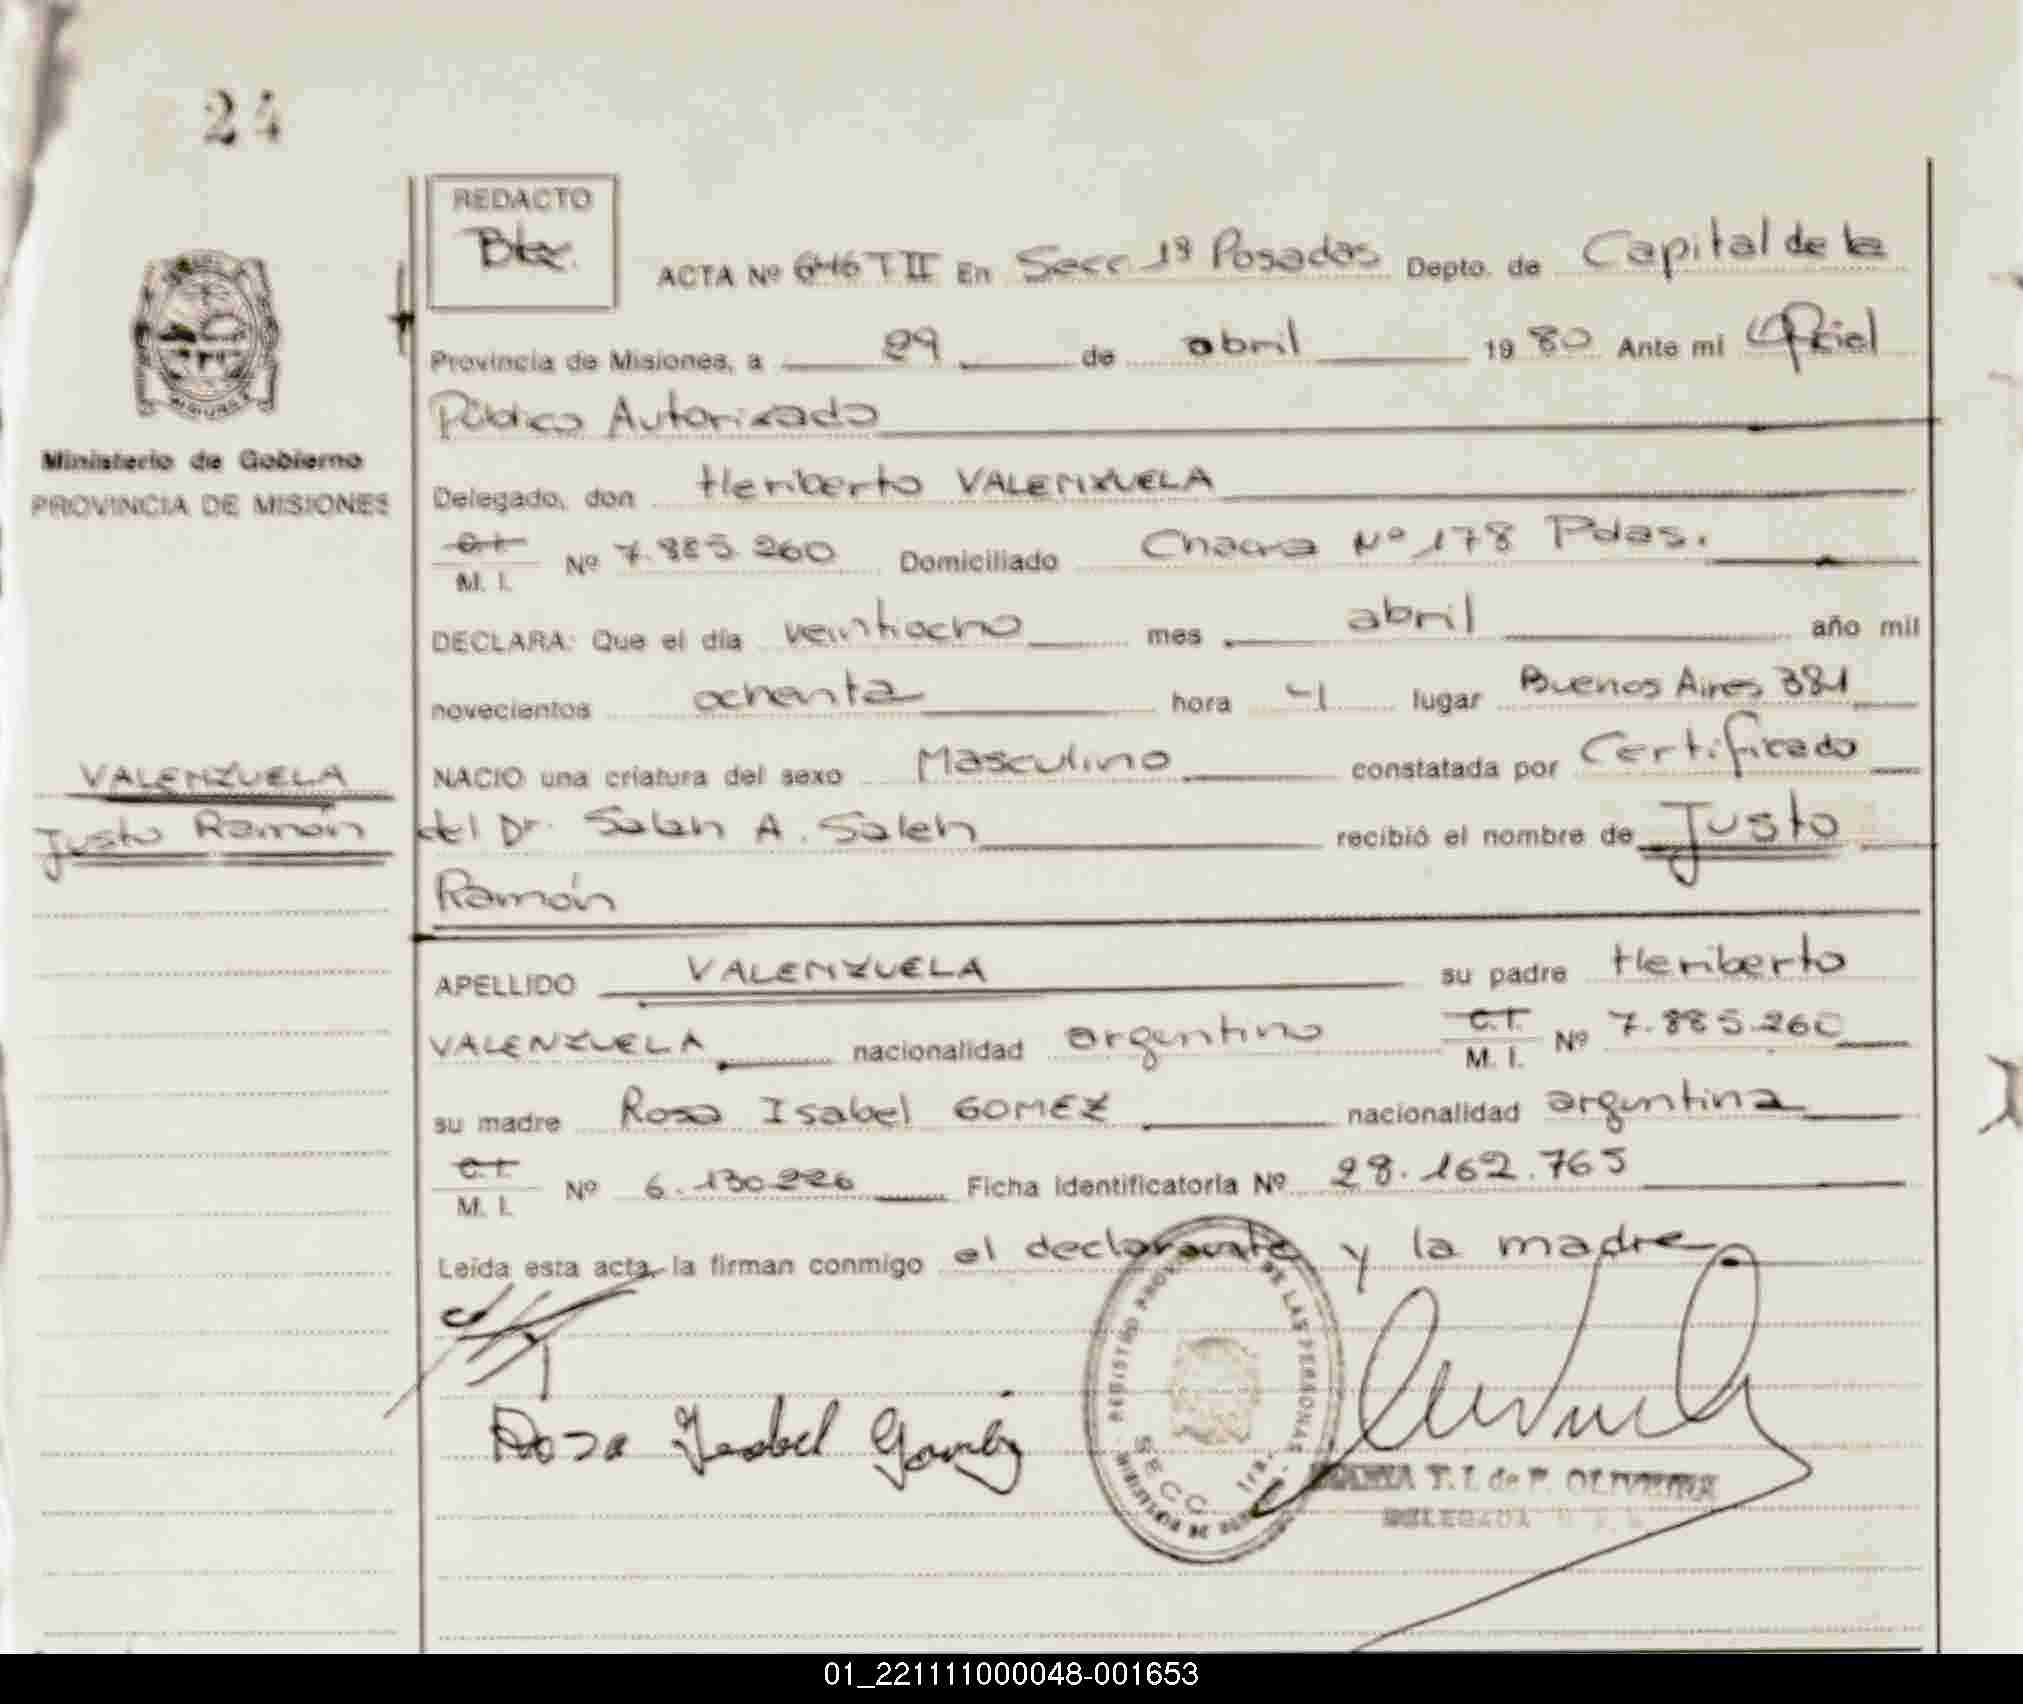 24
REDACTO
ACTA Nº 646 T II En Secc. 1ª Posadas Depto. de Capital de la
Provincia de Misiones, a 29 de abril 1980 Ante mi Oficial
Público Autorizado
Ministerio de Gobierno
PROVINCIA DE MISIONES
Delegado, don Heriberto VALENZUELA
C.I.
M. I. Nº 7.885.260 Domiciliado Chacra Nº 178 Pdas.
DECLARA: Que el día veintiocho mes abril año mil
novecientos ochenta hora lugar Buenos Aires 381
VALENZUELA
Justo Ramón
NACIO una criatura del sexo Masculino constatada por Certificado
del Dr. Saleh A. Saleh recibió el nombre de Justo
Ramón
APELLIDO VALENZUELA su padre Heriberto
VALENZUELA nacionalidad argentino C.I. M. I. Nº 7.885.260
su madre Rosa Isabel GOMEZ nacionalidad argentina
C.I.
M. I. Nº 6.130.226 Ficha Identificatoria Nº 28.162.765
Leída esta acta, la firman conmigo el declarante y la madre
Rosa Isabel Gomez
REGISTRO PROV. DE LAS PERSONAS
SECC. 1ra.
MARIA T. I. de P. OLIVEIRA
DELEGADA
01_221111000048-001653